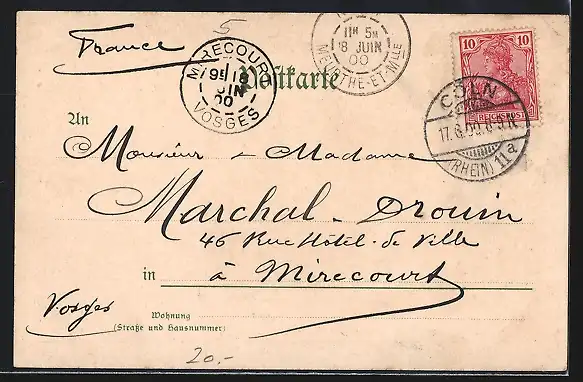 France
5
MIRECOURT
9E
JUIN
00
VOSGES
Postkarte
11H 5M
8 JUIN
00
MEURTHE-ET-MLLE
10 10
REICHSPOST
CÖLN
17.6.00.
(RHEIN) 11 a.
An
Monsieur - Madame
Marchal-Drouin
46 Rue Hôtel-de Ville
in à Mirecourt
Vosges
Wohnung
(Straße und Hausnummer)
20.-